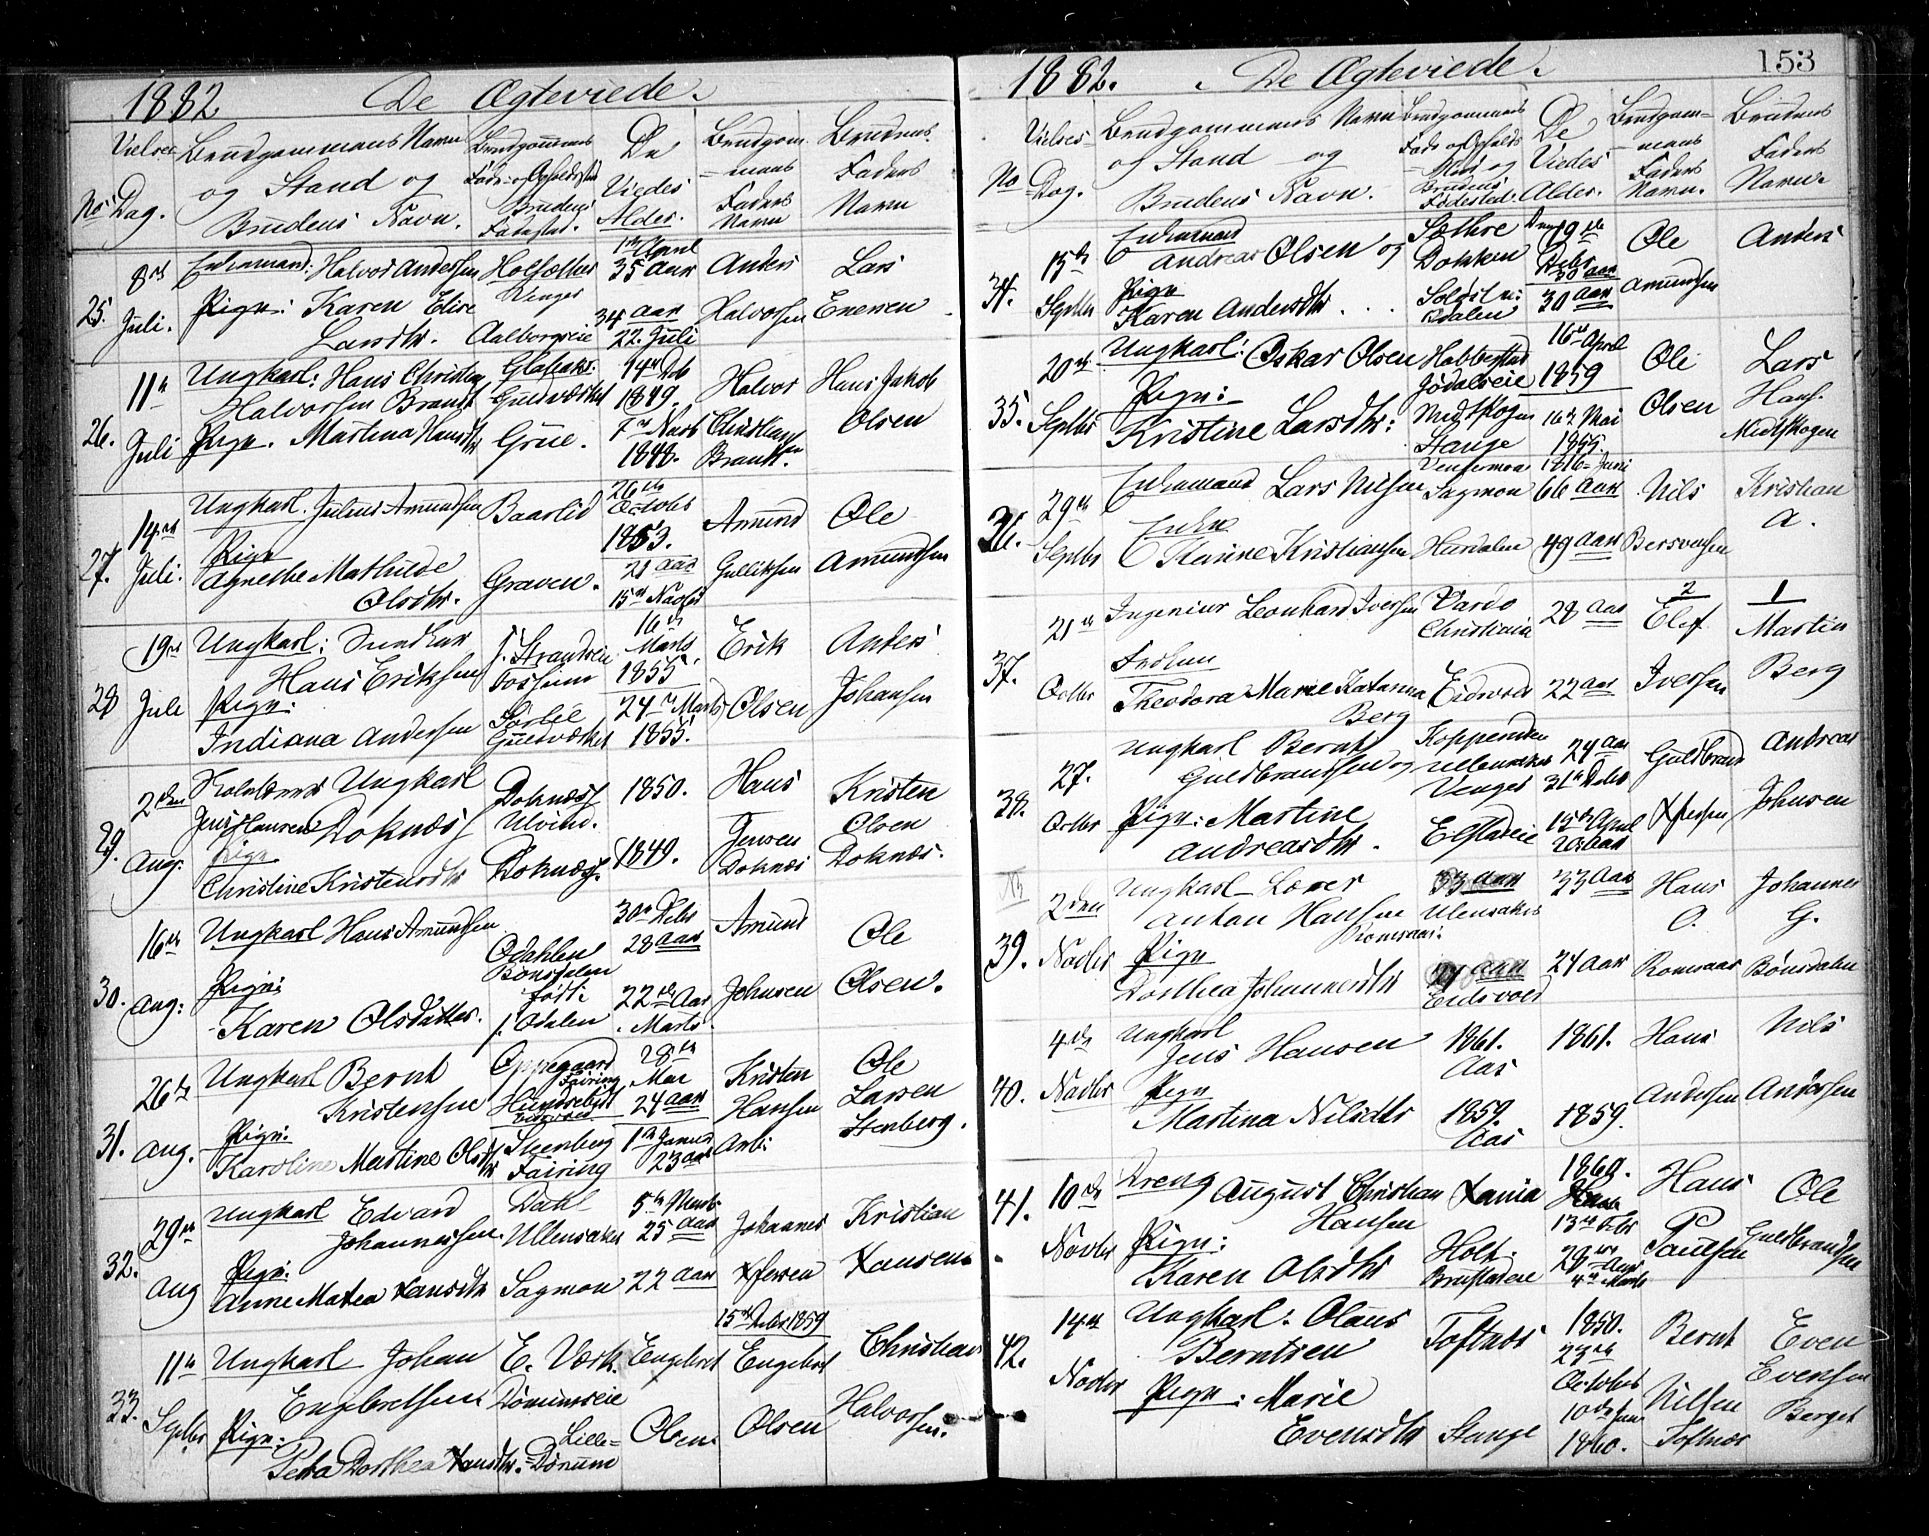 1882 De Ægteviede.
Vielses Brudgommens Navn Brudgommens De Brudgom- Brudens
og Stand og Føde- og Opholdssted Viedes mans Faders
No Dag. Brudens Navn. Brudens Fødested. Alder. Faders Navn Navn
25. 8de Juli.
Enkemand: Halvor Andersen
Pige: Karen Elise
Larsdtr.
Holsæther
Venger
Aalborgseie
1ste April
35 Aar
34 Aar
22. Juli
Anders
Halvorsen
Lars
Evensen
26. 11te Juli
Ungkarl: Hans Christian
Halvorsen Brandt
Pige. Martina Hansdtr
Guldværket
Grue.
1849.
1848.
Halvor
Christian
Brandt.
Hans Jakob
Olsen
27. 14de Juli.
Ungkarl. Julius Amundsen
Pige
Agnethe Mathilde
Olsdtr.
Baarlid
Graven.
26de
Octobr
1853.
21 Aar
15de Novbr
Amund
Gulliksen
Ole
Amundsen
28 19de Juli
Ungkarl:
Hans Eriksen
Pige:
Indiana Andersen
f. Strandseie
Fossum
Sørlie
Guldværket
16de
Marts
1855.
24de Marts
1855.
Erik
Olsen
Anders
Johansen
29. 2den Aug.
Ungkarl
Doknæs
Pige
Christine Kristensdtr
Doknæs
Ulvind.
Doknæs.
1850.
1849.
Hans
Jensen
Doknæs
Kristen
Olsen
Doknæs.
30. 16de Aug:
Ungkarl Hans Amundsen
Pige:
Karen Olsdatter.
Odahlen
Bønsdalen
født:
f. Odalen
30te Debr
28 Aar
22de Aar
Marts.
Amund
Johnsen
Ole
Olsen.
31. 26de Aug.
Ungkarl Bernt
Kristensen
Pige:
Karoline Martine Olsdtr
Oppegaard
Fairing
Steenberg
Fairing
28de
Mai
24 Aar
1ste Januar
23 Aar
Kristen
Hansen
Arb:
Ole
Larsen
Stenberg.
32. 29de Aug
Ungkarl Edvard
Johannessen.
Pige:
Anne Matea Hansdtr
Dahl
Ullensaker
Sagmon
25 Aar
22 Aar
Johannes
Kristian
Hansen
33. 11te Septbr
Ungkarl Johan
Engebretsen
Pige:
Petra Dorthea Hansdtr.
E. Værk.
Dønnumseie
Lille=
=Dønnum
Engebret
Olsen.
15de Debr 1859
Engebret
Olsen
Christian
Halvorsen.
1882. De Ægteviede. 153
Vielses- Brudgommens Navn Brudgommens De Brudgom- Brudens
og Stand og Føde og Opholds Viedes mans Faders
No Dag. Brudens Navn. Sted og Brudens Fødested. Alder. Faders Navn. Navn.
34. 15de Septbr
Enkemand
Andreas Olsen og
Pige
Karen Andersdtr...
Sæthre
Dokken
19de
Debr
30 Aar
30 Aar
Ole
Amundsen
Anders
35. 20de Septbr
Ungkarl: Oskar Olsen
Pige:
Kristine Larsdtr:
Habberstad
Jødalseie
Midtskogen
Stange
16de April
1859
16de Mai
1855
Ole
Olsen
Lars
Hans.
Midtskogen
36. 29de Septbr
Enkemand Lars Nilsen
Enke
Karine Kristiansen
Sagmon
Hurdalen
1816 Juni
66 Aar
49 Aar
Nils
Bersvensen
Kristian
A.
37. 21de Octbr
Ingeniør Leonhard Iversen
Frøken
Theodora Marie Katarina
Berg
Vardø
Christiania
Eidsvold
28 Aar
22 Aar
2
Elef
Iversen
1
Martin
Berg
38. 27. Octbr
Ungkarl Bernt
Guldbrandsen og
Pige: Martine
Andreasdtr.
Ullensaker
Venger
Elstadeie
24 Aar
31te Debr
15de April
20 Aar
Guldbrand
Andreas
Johnsen
39. 2den Novbr
Ungkarl Lærer
Anton Hansen
Romsaas:
Pige
Dorthea Johannesdtr
33 Aar
Ulensaker
24 Aar
Eidsvold
33 Aar
24 Aar
Hans
O.
Romsaas
Johannes
G.
Bønsdalen
40. 4de Novbr
Ungkarl
Jens Hansen
Pige
Martina Nilsdtr
1861.
Aas
1859.
Aas
1861.
1859.
Hans
Andersen
Nils
Andersen
41. 10de Novbr
Dreng August Christian
Hansen
Pige:
Karen Olsdtr
Xania
Holt.
1860.
13de Febr
4de Marts
Hans
Paulsen
Ole
Guldbrandsen
42. 14de Novbr
Ungkarl: Olaus
Berntsen
Pige: Marie
Evensdtr
Toftnæs
Stange
1850.
October
10de Juni
1860.
Bernt
Nilsen
Toftnæs
Even
Evensen
Berget